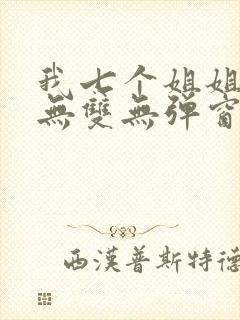 我七个姐姐
無雙無彈窗
西漢普斯特德